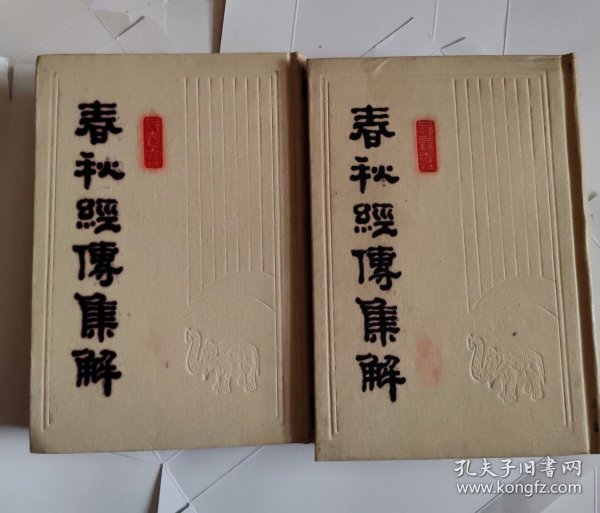 春秋經傳集解
春秋經傳集解
孔夫子旧书网
www.kongfz.com